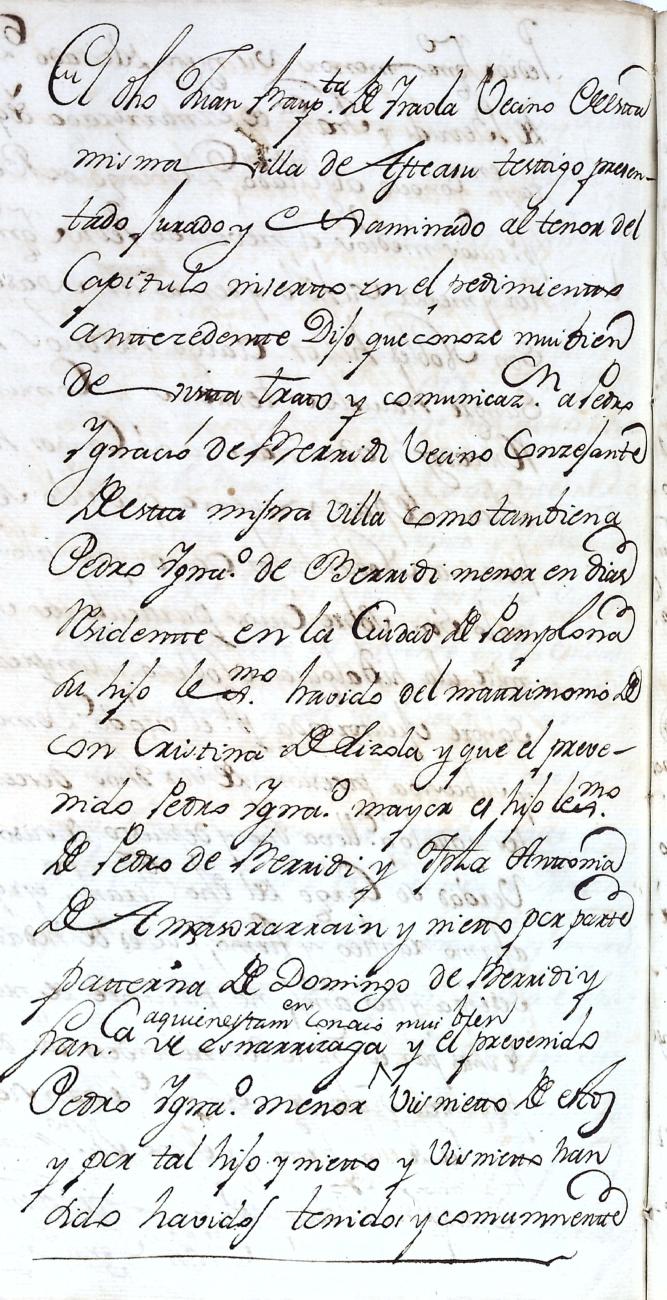 El dho Juan Baup.ta de Iraola Vecino de esta
misma villa de Asteasu testigo presen-
tado jurado y examinado al tenor del
Capitulo inserto en el pedimiento
antezedentte Dijo que conoze mui bien
de vistta trato y comunicaz.on a Pedro
Ygnacio de Berridi Vecino Conzejante
de estta misma villa como tambien a
Pedro Ygna.o de Berridi menor en dias
Residentte en la Ciudad de Pamplona
su hijo lex.mo havido del mattrimonio de
con Cristina de Lizola y que el preve-
nido Pedro Ygna.o mayor es hijo lex.mo
de Pedro de Berridi y Antonia
de Amasorrarrain y nietto por parte
patterna de Domingo de Berridi y
a quienes tam.en conocio mui bien
Fran.ca de esnarrizaga y el prevenido
Pedro Ygna.o menor Visnietto de estos
y por tal hijo y nietto y Visnietto han
sido havidos tenidos y comunmente